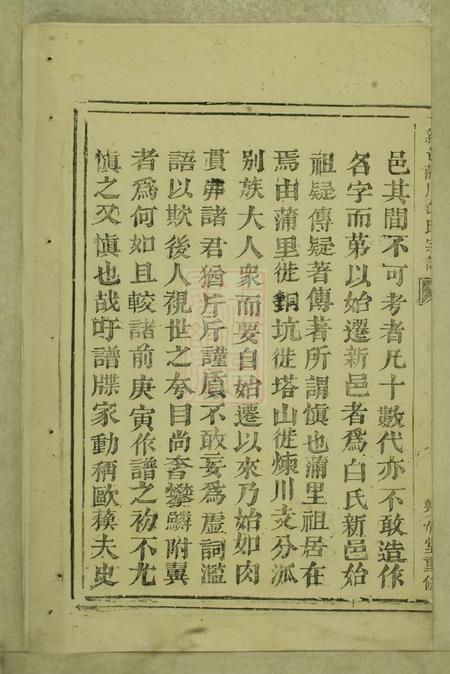 邑其間不可考者凡十數代亦不敢造作
名字而第以始遷新邑者為白氏新邑始
祖疑傳疑著傳著所謂慎也蒲里祖居在
焉由蒲里徙銅坑徙塔山徙煉川支分派
別族大人衆而要自始遷以來乃始如肉
貫丳諸君猶斤斤謹慎不敢妄為虛詞濫
語以欺後人視世之夸目尚奢攀鱗附翼
者為何如且較諸前庚寅作譜之初不尤
慎之又慎也哉吁譜牒家動稱歐蘓夫史